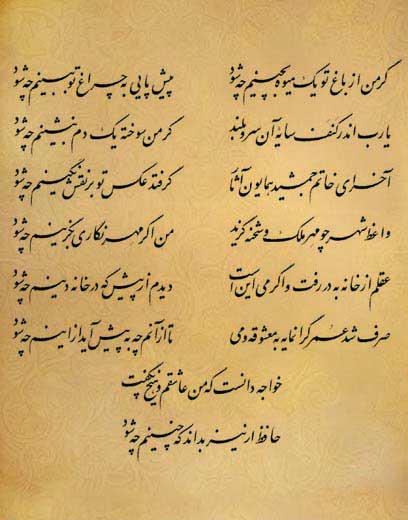 گر من از باغ تو یک میوه بچینم چه شود پیش پایی به چراغ تو ببینم چه شود
یارب اندر کنف سایهٔ آن سرو بلند گر من سوخته یک دم بنشینم چه شود
آخر ای خاتم جمشید همایون آثار گر فتد عکس تو بر نقش نگینم چه شود
واعظ شهر چو مهر ملک و شحنه گزید من اگر مهر نگاری بگزینم چه شود
عقلم از خانه به در رفت و اگر می این است دیدم از پیش که در خانه دینم چه شود
صرف شد عمر گرانمایه به معشوقه و می تا از آنم چه به پیش آید از اینم چه شود
خواجه دانست که من عاشقم و هیچ نگفت
حافظ ار نیز بداند که چنینم چه شود